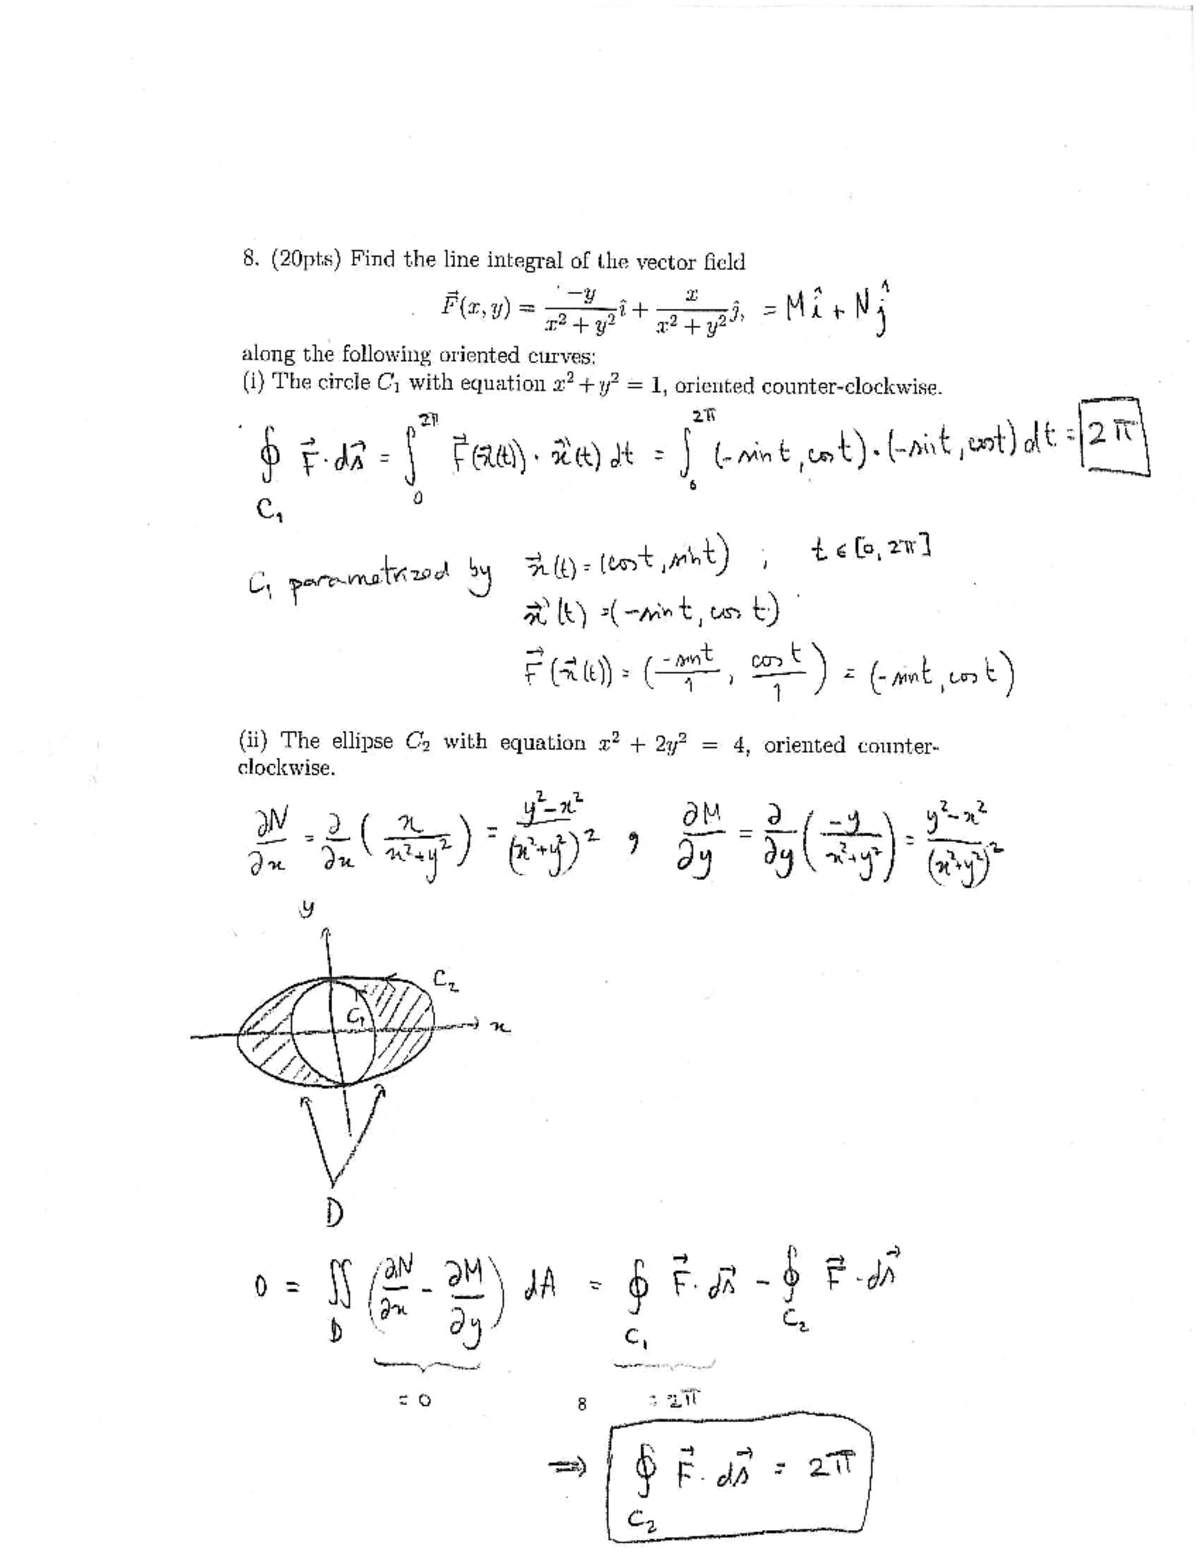 8. (20pts) Find the line integral of the vector field
F⃗(x, y) = −y/(x² + y²) î + x/(x² + y²) ĵ, = M î + N ĵ
along the following oriented curves:
(i) The circle C₁ with equation x² + y² = 1, oriented counter-clockwise.
∮_C₁ F⃗ · ds⃗ = ∫₀^2π F⃗(x⃗(t)) · x⃗'(t) dt = ∫₀^2π (−sin t, cos t) · (−sin t, cos t) dt = 2π
C₁ parametrized by x⃗(t) = (cos t, sin t) ; t ∈ [0, 2π]
x⃗'(t) = (−sin t, cos t)
F⃗(x⃗(t)) = (−sin t/1, cos t/1) = (−sin t, cos t)
(ii) The ellipse C₂ with equation x² + 2y² = 4, oriented counter-
clockwise.
∂N/∂x = ∂/∂x (x/(x²+y²)) = (y²−x²)/(x²+y²)² , ∂M/∂y = ∂/∂y (−y/(x²+y²)) = (y²−x²)/(x²+y²)²
y
C₂
C₁
x
D
0 = ∬_D (∂N/∂x − ∂M/∂y) dA = ∮_C₁ F⃗ · ds⃗ − ∮_C₂ F⃗ · ds⃗
= 0 8 = 2π
⇒ ∮_C₂ F⃗ · ds⃗ = 2π